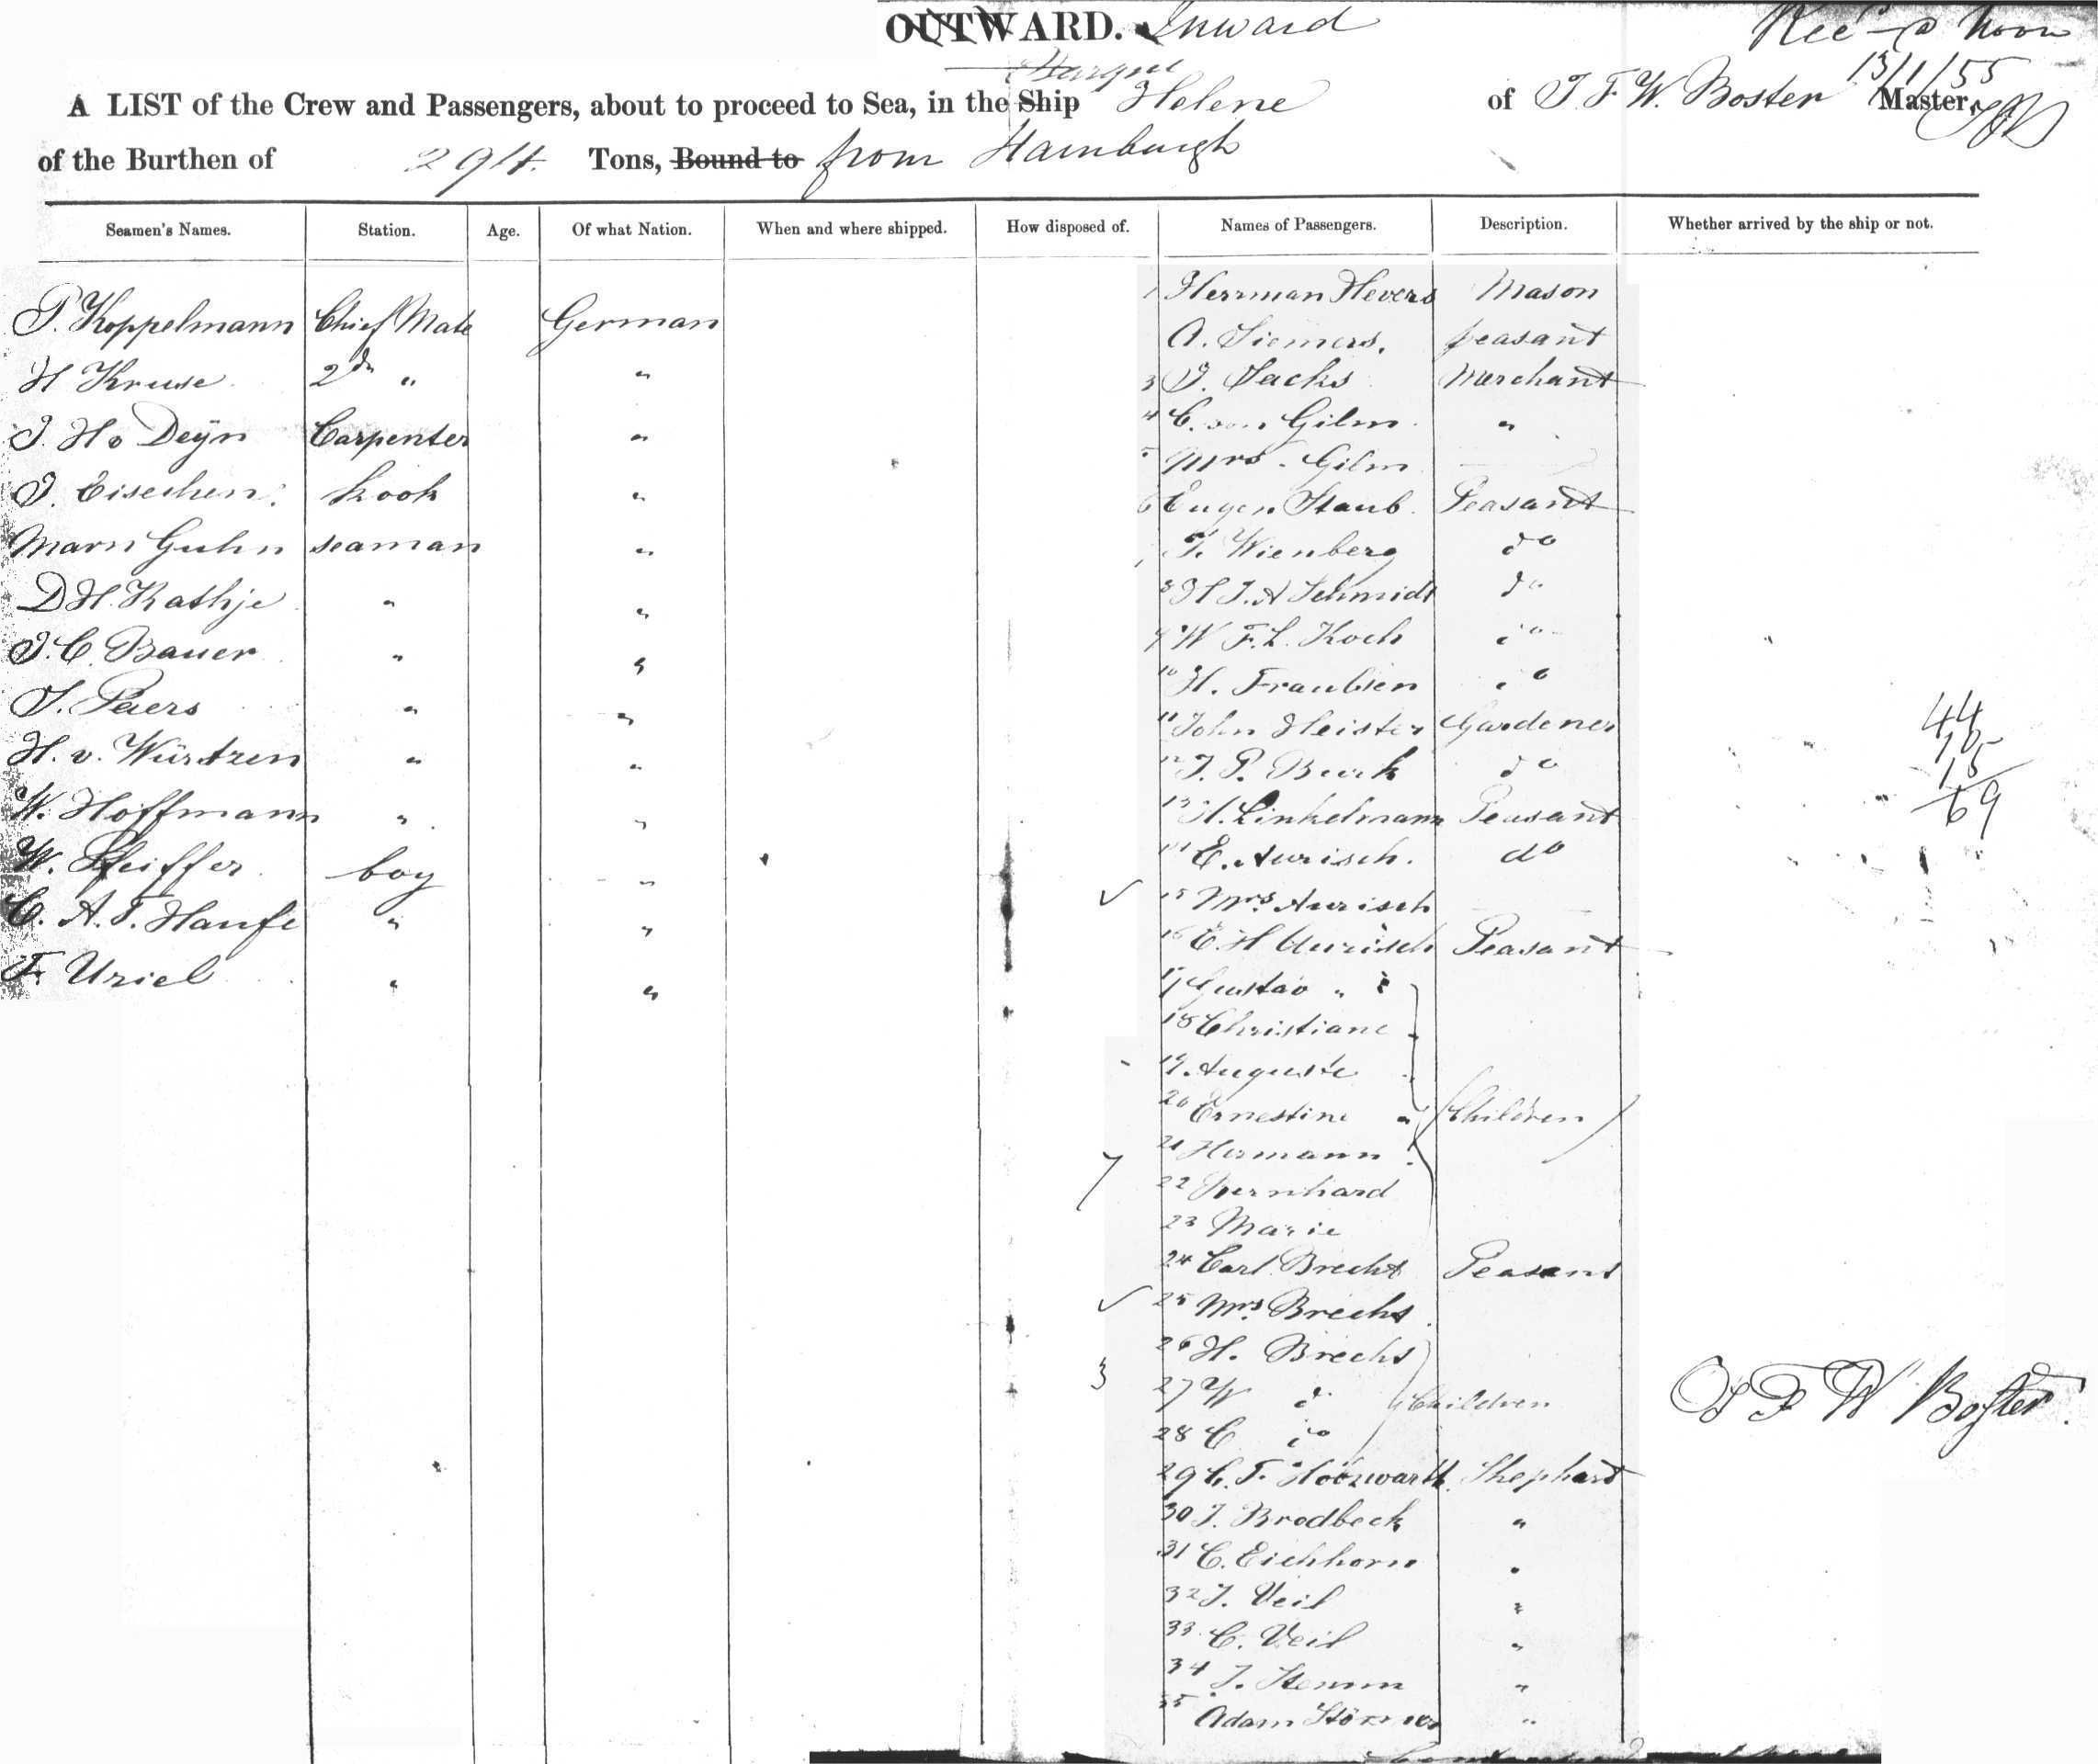 OUTWARD. Inward
Rec'd Noon
13/1/55
Barque
A LIST of the Crew and Passengers, about to proceed to Sea, in the Ship Helene of J. F. W. Boster Master,
of the Burthen of 294 Tons, Bound to from Hamburgh
Seamen's Names. Station. Age. Of what Nation. When and where shipped. How disposed of. Names of Passengers. Description. Whether arrived by the ship or not.
P. Koppelmann Chief Mate German
H Kruse 2d " "
J. H. Deÿn Carpenter "
J. Eisechen Kook "
Marn Guhn seaman "
D H. Kathje " "
J. C. Bauer " "
J. Peers " "
H. v. Würtzen " "
W. Hoffmann " "
W. Pfeiffer boy "
C. A. F. Haufe " "
F. Uriel " "
1 Herrman Hevers Mason
A. Siemers. peasant
3 J. Sachs Merchant
4 C. von Gilm "
5 Mrs. Gilm
6 Eugen Staub. Peasant
T. Wienberg do
8 H J. A Schmidt do
9 W F. L. Koch do
10 H. Fraubsen do
11 John Heister Gardener
12 J. P. Burk do
13 H. Linkelmann Peasant
14 E. Aurisch. do
15 Mrs. Aurisch
16 E. H Aurisch Peasant
17 Gustav "
18 Christiane
19. Auguste
20 Ernestine " Children
21 Hermann
7
22 Bernhard
23 Marie
24 Carl Brecht Peasant
25 Mrs. Brecht
26 H. Brecht
3
27 W do Children
28 C do
29 C. F. Holzwarth Shephard
30 J. Brodbeck "
31 C. Eichhorn "
32 J. Veil "
33 C. Veil "
34 J. Stemm "
35 Adam Störmer "
44
10
15
69
J F W Boster.